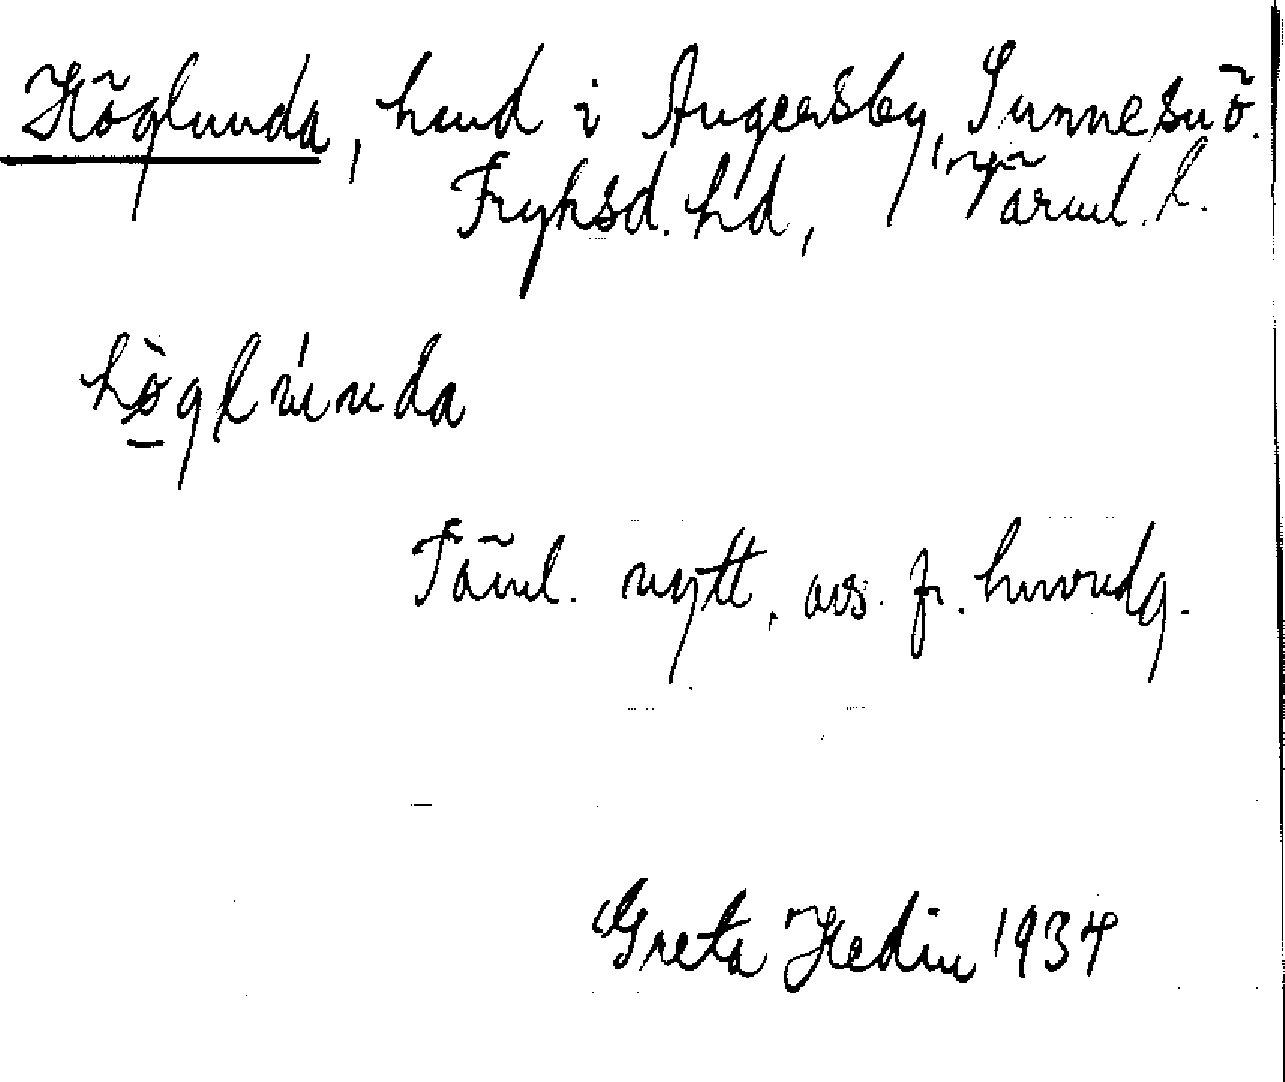 Höglunda, hmd i Angersby, Sunne sn ö.
Fryksd. hd, Värml. l.
hö̀glúnda
Täml. nytt, avs. fr. huvudg.
Greta Hedin 1934